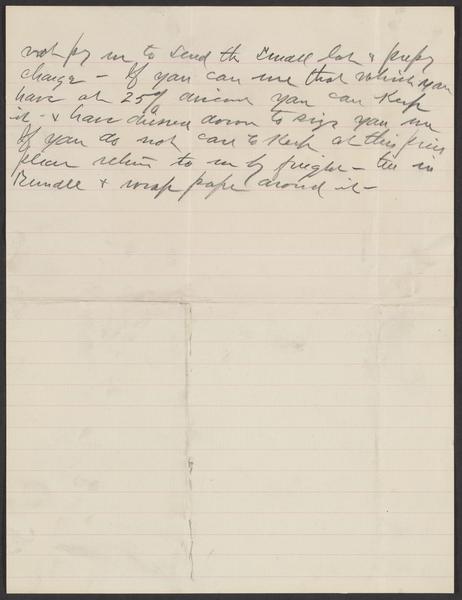 not pay me to send the small lot & prepay
charges - If you can use that which you
have at 25% discount you can keep
it - & have dressed down to size you use
If you do not care to keep at this price
please return to me by freight - tie in
Bundle & wrap paper around it -